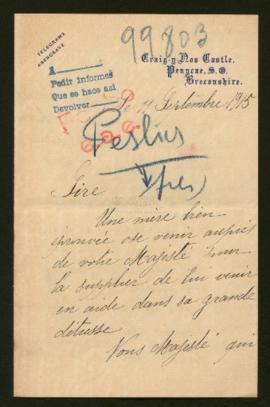 99803
TELEGRAMS
ABERCRAVE
Craig-y-Nos Castle,
Penycae, S.O.
Breconshire.
Pedir informes
Que se hace asi
Devolver
Le 11 Septembre 1915
Sire
Une mère bien
éprouvée ose venir auprès
de votre Majesté pour
la supplier de lui venir
en aide dans sa grande
détresse
Vous Majesté qui